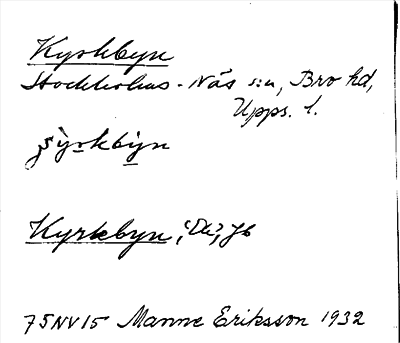 Kyrkbyn
Stockholms-Näs s:n, Bro hd,
Upps. l.
Kyrkbyn
75NV15 Manne Eriksson 1932